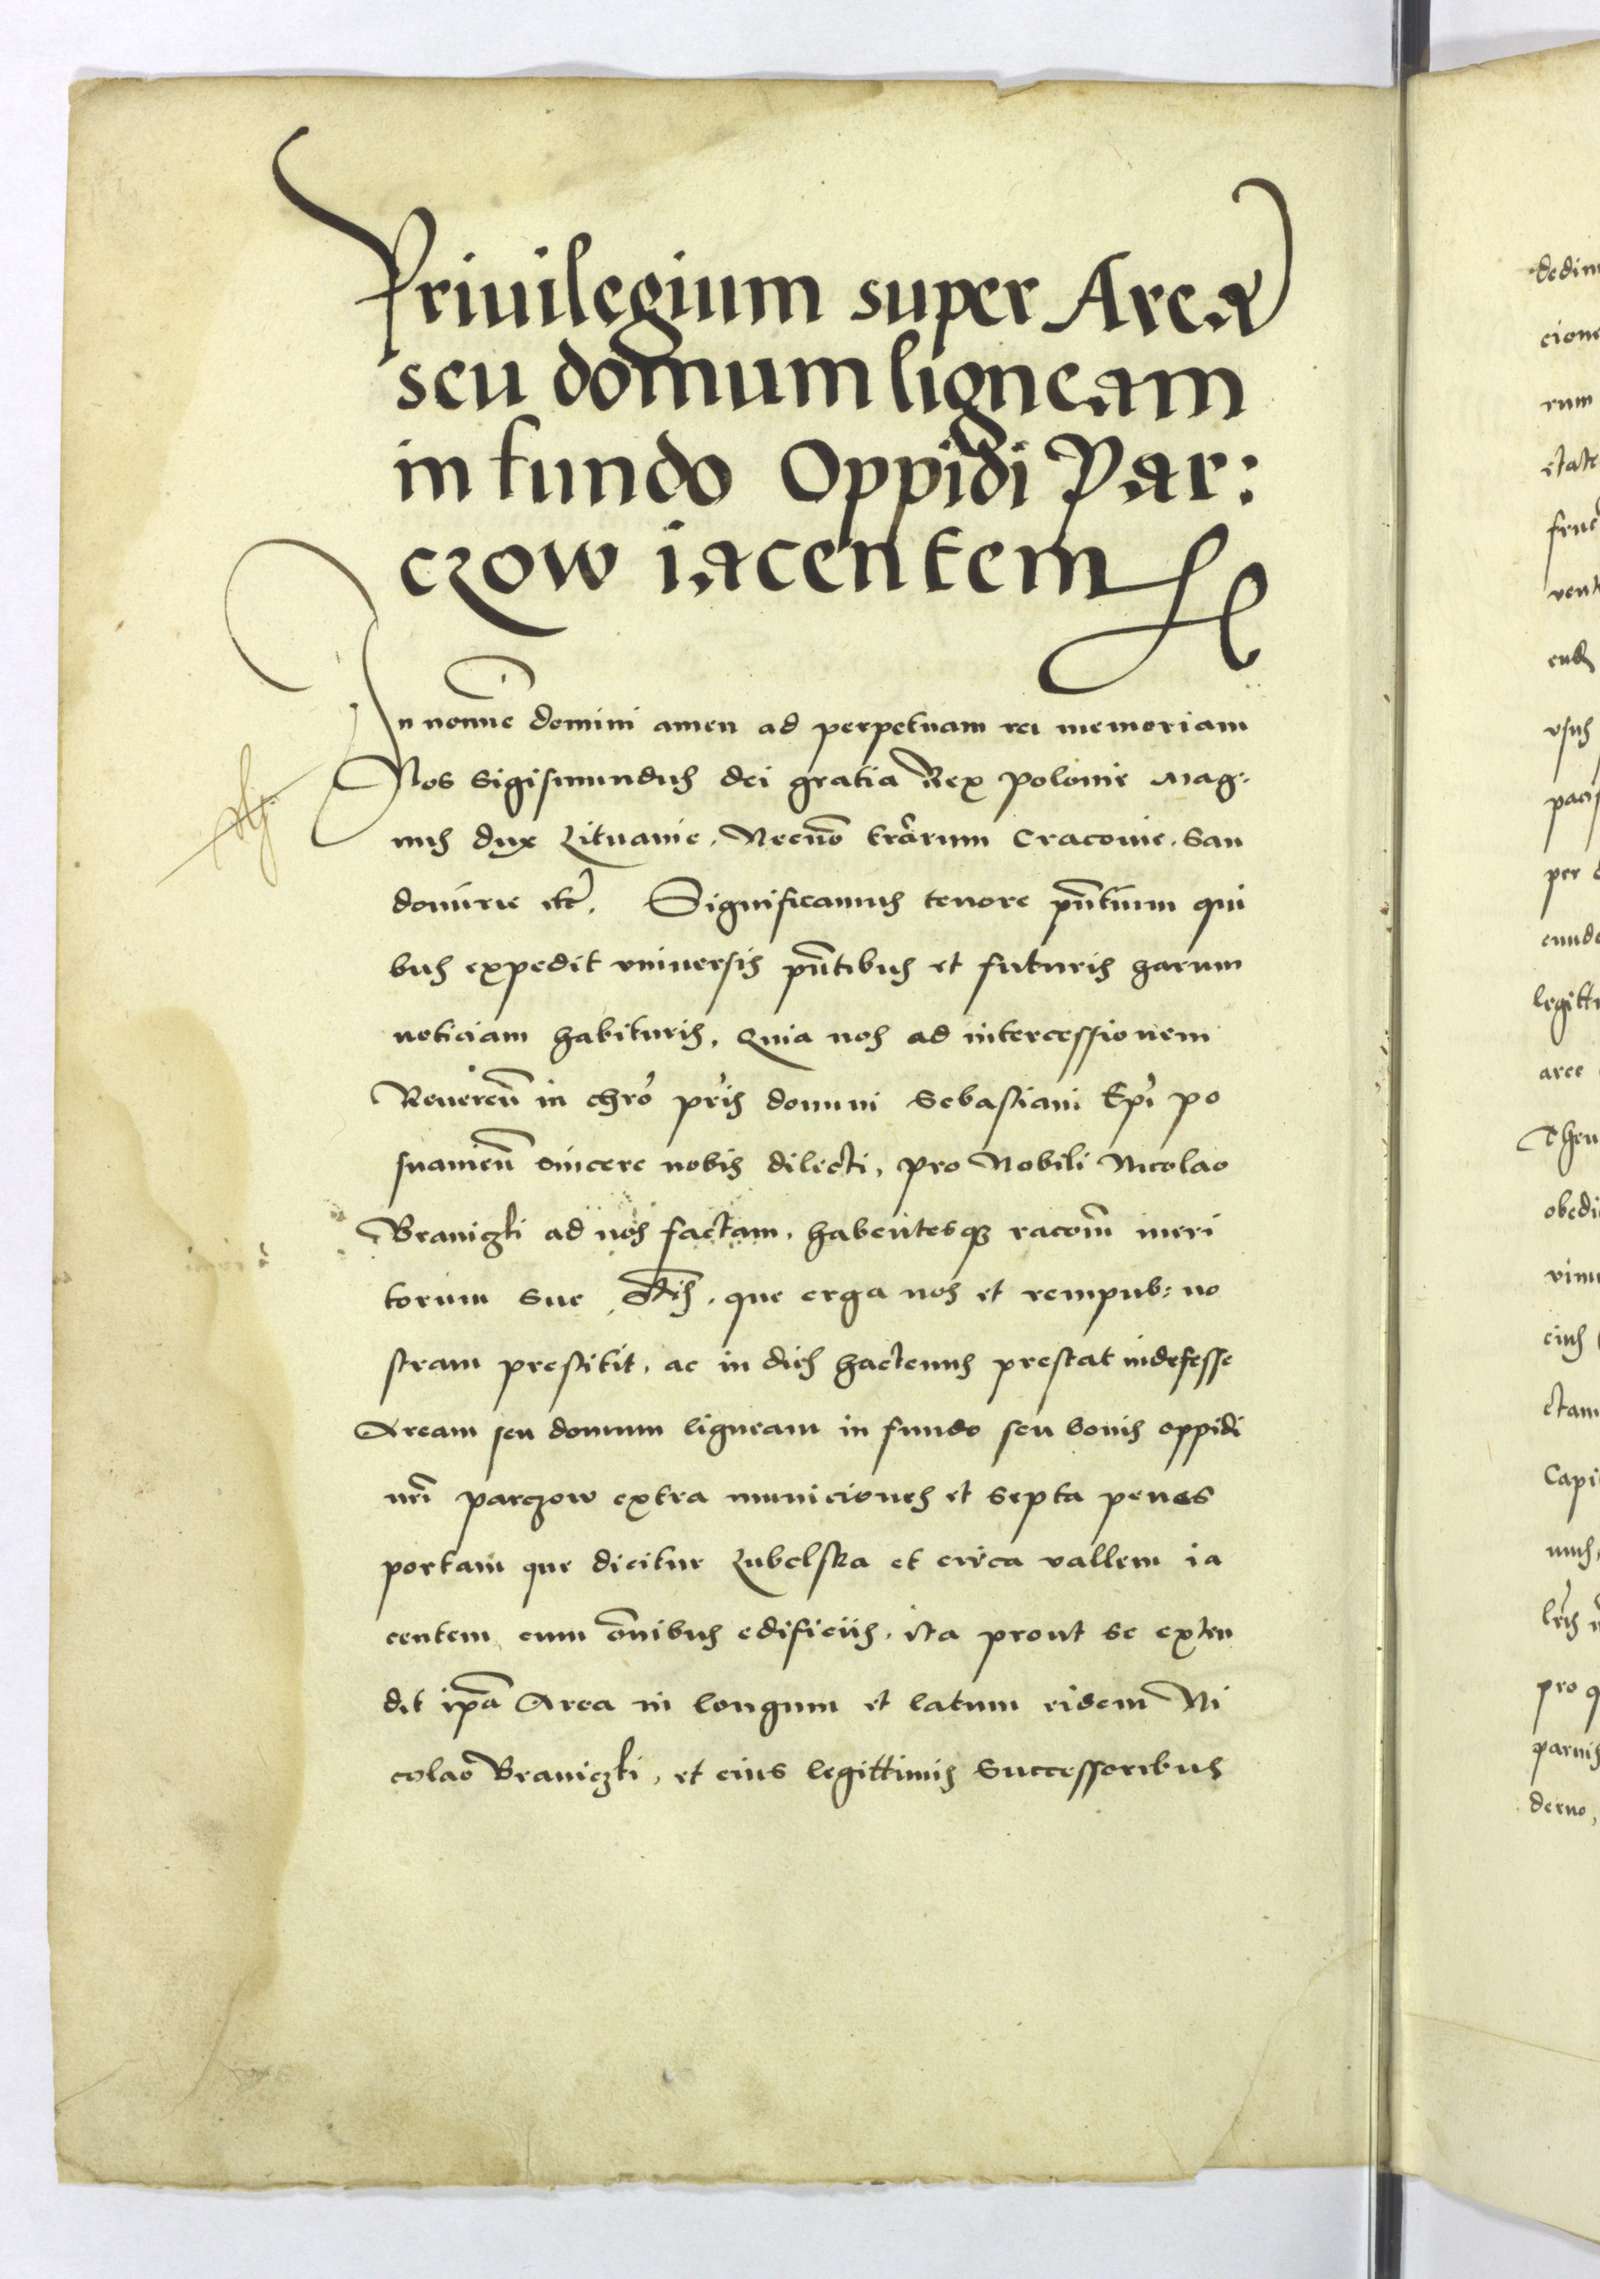 Privilegium super Areã
seu domum ligneam
in fundo Oppidi Par:
czow iacentem
In nomĩe domini amen ad perpetuam rei memoriam
Nos Sigismundus dei gratia Rex polonie Mag-
nus dux Lituanie, Necnõ trãrum Cracouie, San
domirie etc̃. Significamus tenore pñtium qui
bus expedit vniuersis pñtibus et futuris harum
noticiam habituris, Quia nos ad intercessionem
Reuereñ in chrõ pr̃is domini Sebastiani Ep̃i po
snanieñ sincere nobis dilecti, pro Nobili Nicolao
Braniczki ad nos factam, habentesq; racom̃ meri
torum sue, que erga nos et rempub: no
stram prestitit, ac in dies hactenus prestat indefesse
Aream seu domum ligneam in fundo seu bonis oppidi
nr̃i parczow extra municiones et septa penes
portam que dicitur Lubelska et circa vallem ia
centem, cum õnibus edificiis, ita prout se exten
dit ip̃a Area in longum et latum eidem Ni
colao Braniczki, et eius legittimis Successoribus
dedim
cione
rum
ctate
vent
vsus
per
legitt
arce
obedi
vinu
eius
ctam
Capi
pro q
paruis
derno,